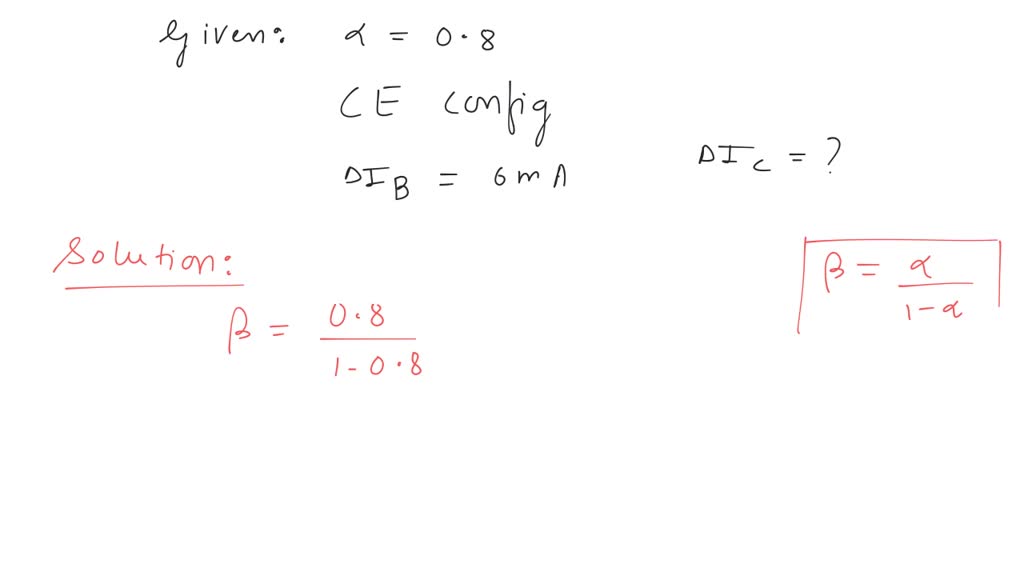 Given: α = 0.8
CE config
ΔI_B = 6 mA
ΔI_C = ?
Solution:
β = α / (1 - α)
β = 0.8 / (1 - 0.8)